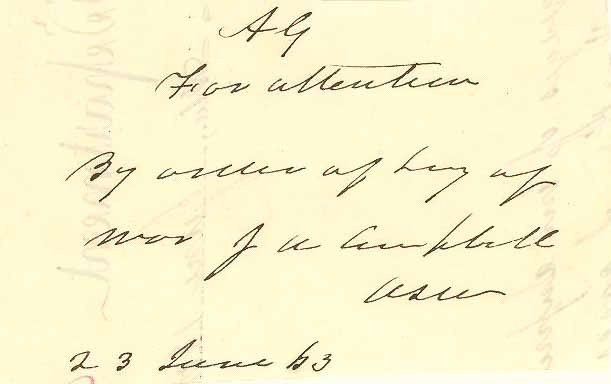 AG
For attention
By order of Secy of
War J A Campbell
ASW
23 June 63